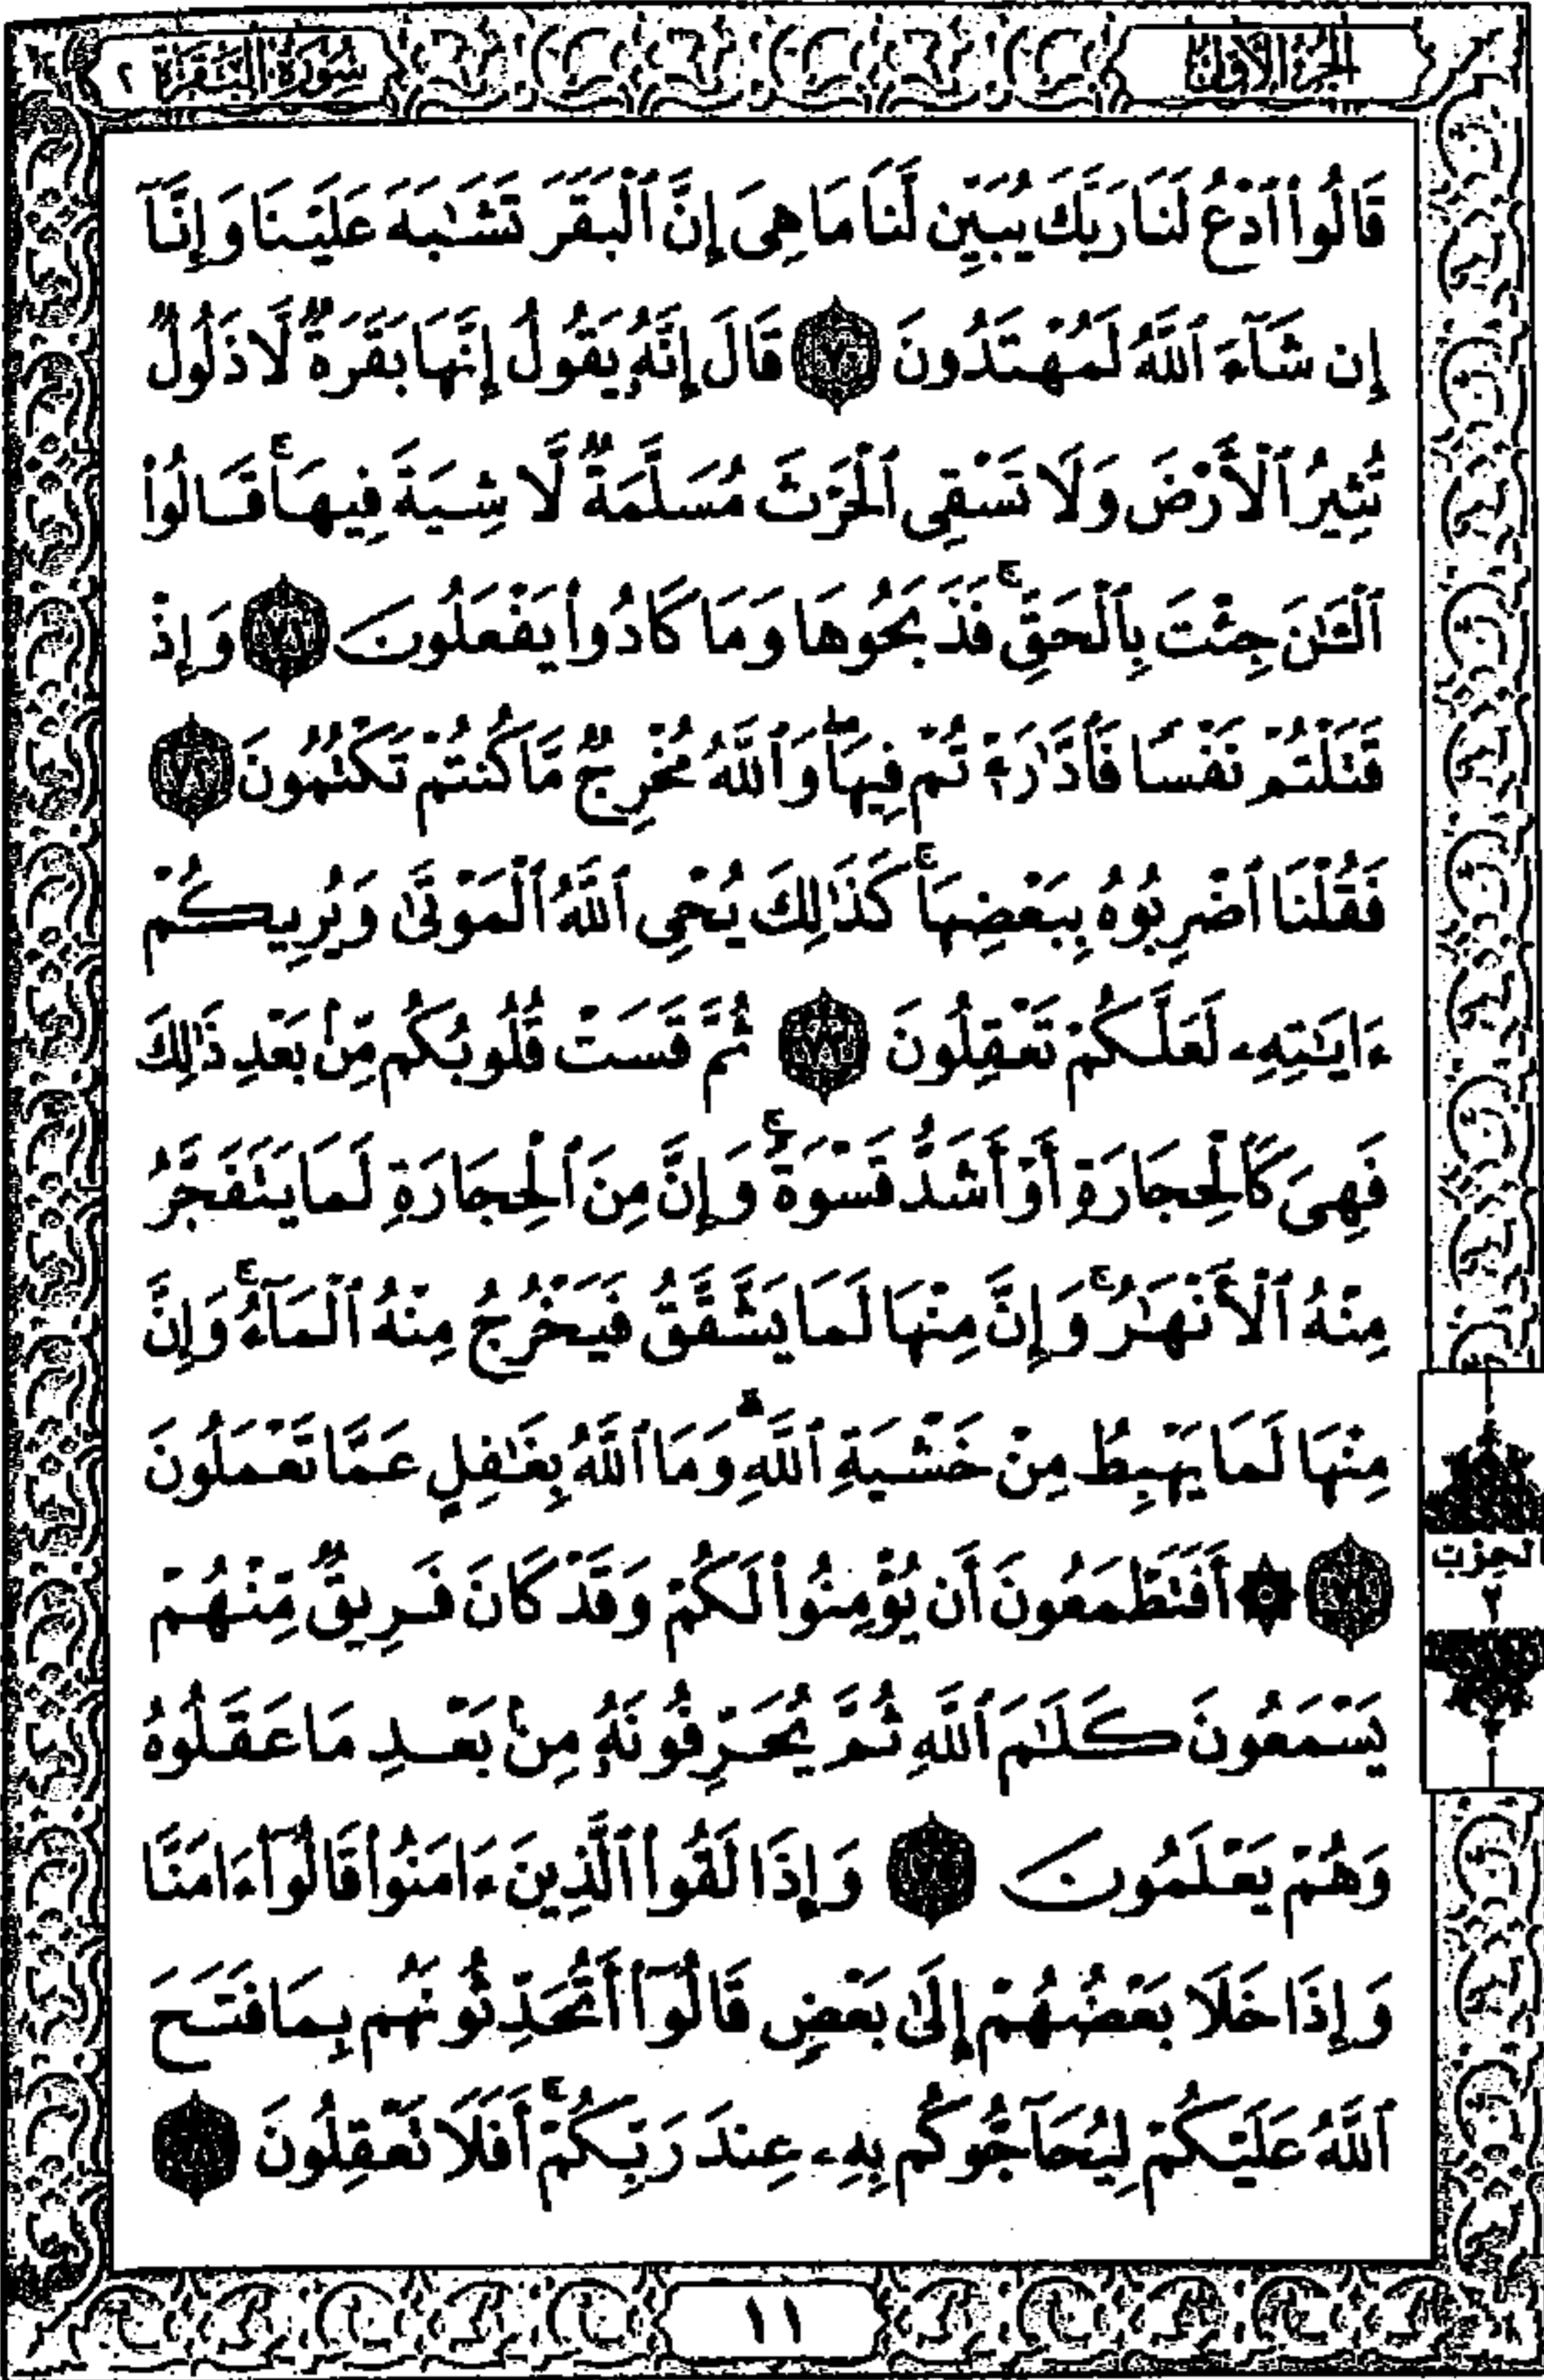 الجزء الأول
سورة البقرة ٢
قَالُوا۟ ٱدْعُ لَنَا رَبَّكَ يُبَيِّن لَّنَا مَا هِىَ إِنَّ ٱلْبَقَرَ تَشَـٰبَهَ عَلَيْنَا وَإِنَّآ
إِن شَآءَ ٱللَّهُ لَمُهْتَدُونَ ٧٠ قَالَ إِنَّهُۥ يَقُولُ إِنَّهَا بَقَرَةٌ لَّا ذَلُولٌ
تُثِيرُ ٱلْأَرْضَ وَلَا تَسْقِى ٱلْحَرْثَ مُسَلَّمَةٌ لَّا شِيَةَ فِيهَا ۚ قَالُوا۟
ٱلْـَٔـٰنَ جِئْتَ بِٱلْحَقِّ ۚ فَذَبَحُوهَا وَمَا كَادُوا۟ يَفْعَلُونَ ٧١ وَإِذْ
قَتَلْتُمْ نَفْسًا فَٱدَّٰرَْٰٔتُمْ فِيهَا ۖ وَٱللَّهُ مُخْرِجٌ مَّا كُنتُمْ تَكْتُمُونَ ٧٢
فَقُلْنَا ٱضْرِبُوهُ بِبَعْضِهَا ۚ كَذَٰلِكَ يُحْىِ ٱللَّهُ ٱلْمَوْتَىٰ وَيُرِيكُمْ
ءَايَـٰتِهِۦ لَعَلَّكُمْ تَعْقِلُونَ ٧٣ ثُمَّ قَسَتْ قُلُوبُكُم مِّنۢ بَعْدِ ذَٰلِكَ
فَهِىَ كَٱلْحِجَارَةِ أَوْ أَشَدُّ قَسْوَةً ۚ وَإِنَّ مِنَ ٱلْحِجَارَةِ لَمَا يَتَفَجَّرُ
مِنْهُ ٱلْأَنْهَـٰرُ ۚ وَإِنَّ مِنْهَا لَمَا يَشَّقَّقُ فَيَخْرُجُ مِنْهُ ٱلْمَآءُ ۚ وَإِنَّ
مِنْهَا لَمَا يَهْبِطُ مِنْ خَشْيَةِ ٱللَّهِ ۗ وَمَا ٱللَّهُ بِغَـٰفِلٍ عَمَّا تَعْمَلُونَ
٧٤ ۞ أَفَتَطْمَعُونَ أَن يُؤْمِنُوا۟ لَكُمْ وَقَدْ كَانَ فَرِيقٌ مِّنْهُمْ
يَسْمَعُونَ كَلَـٰمَ ٱللَّهِ ثُمَّ يُحَرِّفُونَهُۥ مِنۢ بَعْدِ مَا عَقَلُوهُ
وَهُمْ يَعْلَمُونَ ٧٥ وَإِذَا لَقُوا۟ ٱلَّذِينَ ءَامَنُوا۟ قَالُوٓا۟ ءَامَنَّا
وَإِذَا خَلَا بَعْضُهُمْ إِلَىٰ بَعْضٍ قَالُوٓا۟ أَتُحَدِّثُونَهُم بِمَا فَتَحَ
ٱللَّهُ عَلَيْكُمْ لِيُحَآجُّوكُم بِهِۦ عِندَ رَبِّكُمْ ۚ أَفَلَا تَعْقِلُونَ
الحزب
٢
١١